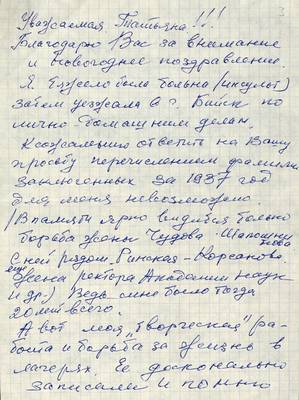 3
Уважаемая Татьяна!!!
Благодарю Вас за внимание
и Новогоднее поздравление.
Я тяжело была больна (инсульт)
Затем уезжала в г. Бийск по
лично-домашним делам.
К сожалению ответить на Вашу
просьбу перечислением фамилий
заключенных за 1937 год
для меня невозможно.
(В памяти ярко видится только
борьба жены Чудова - Шапошни
кова
С ней рядом Ринская - Корсакова.
еще жена ректора Академии наук
и др.) Ведь мне было тогда
20 лет всего.
А вот моя „творческая" ра-
бота и борьба за жизнь в
лагерях. Ее досконально
записали и помню